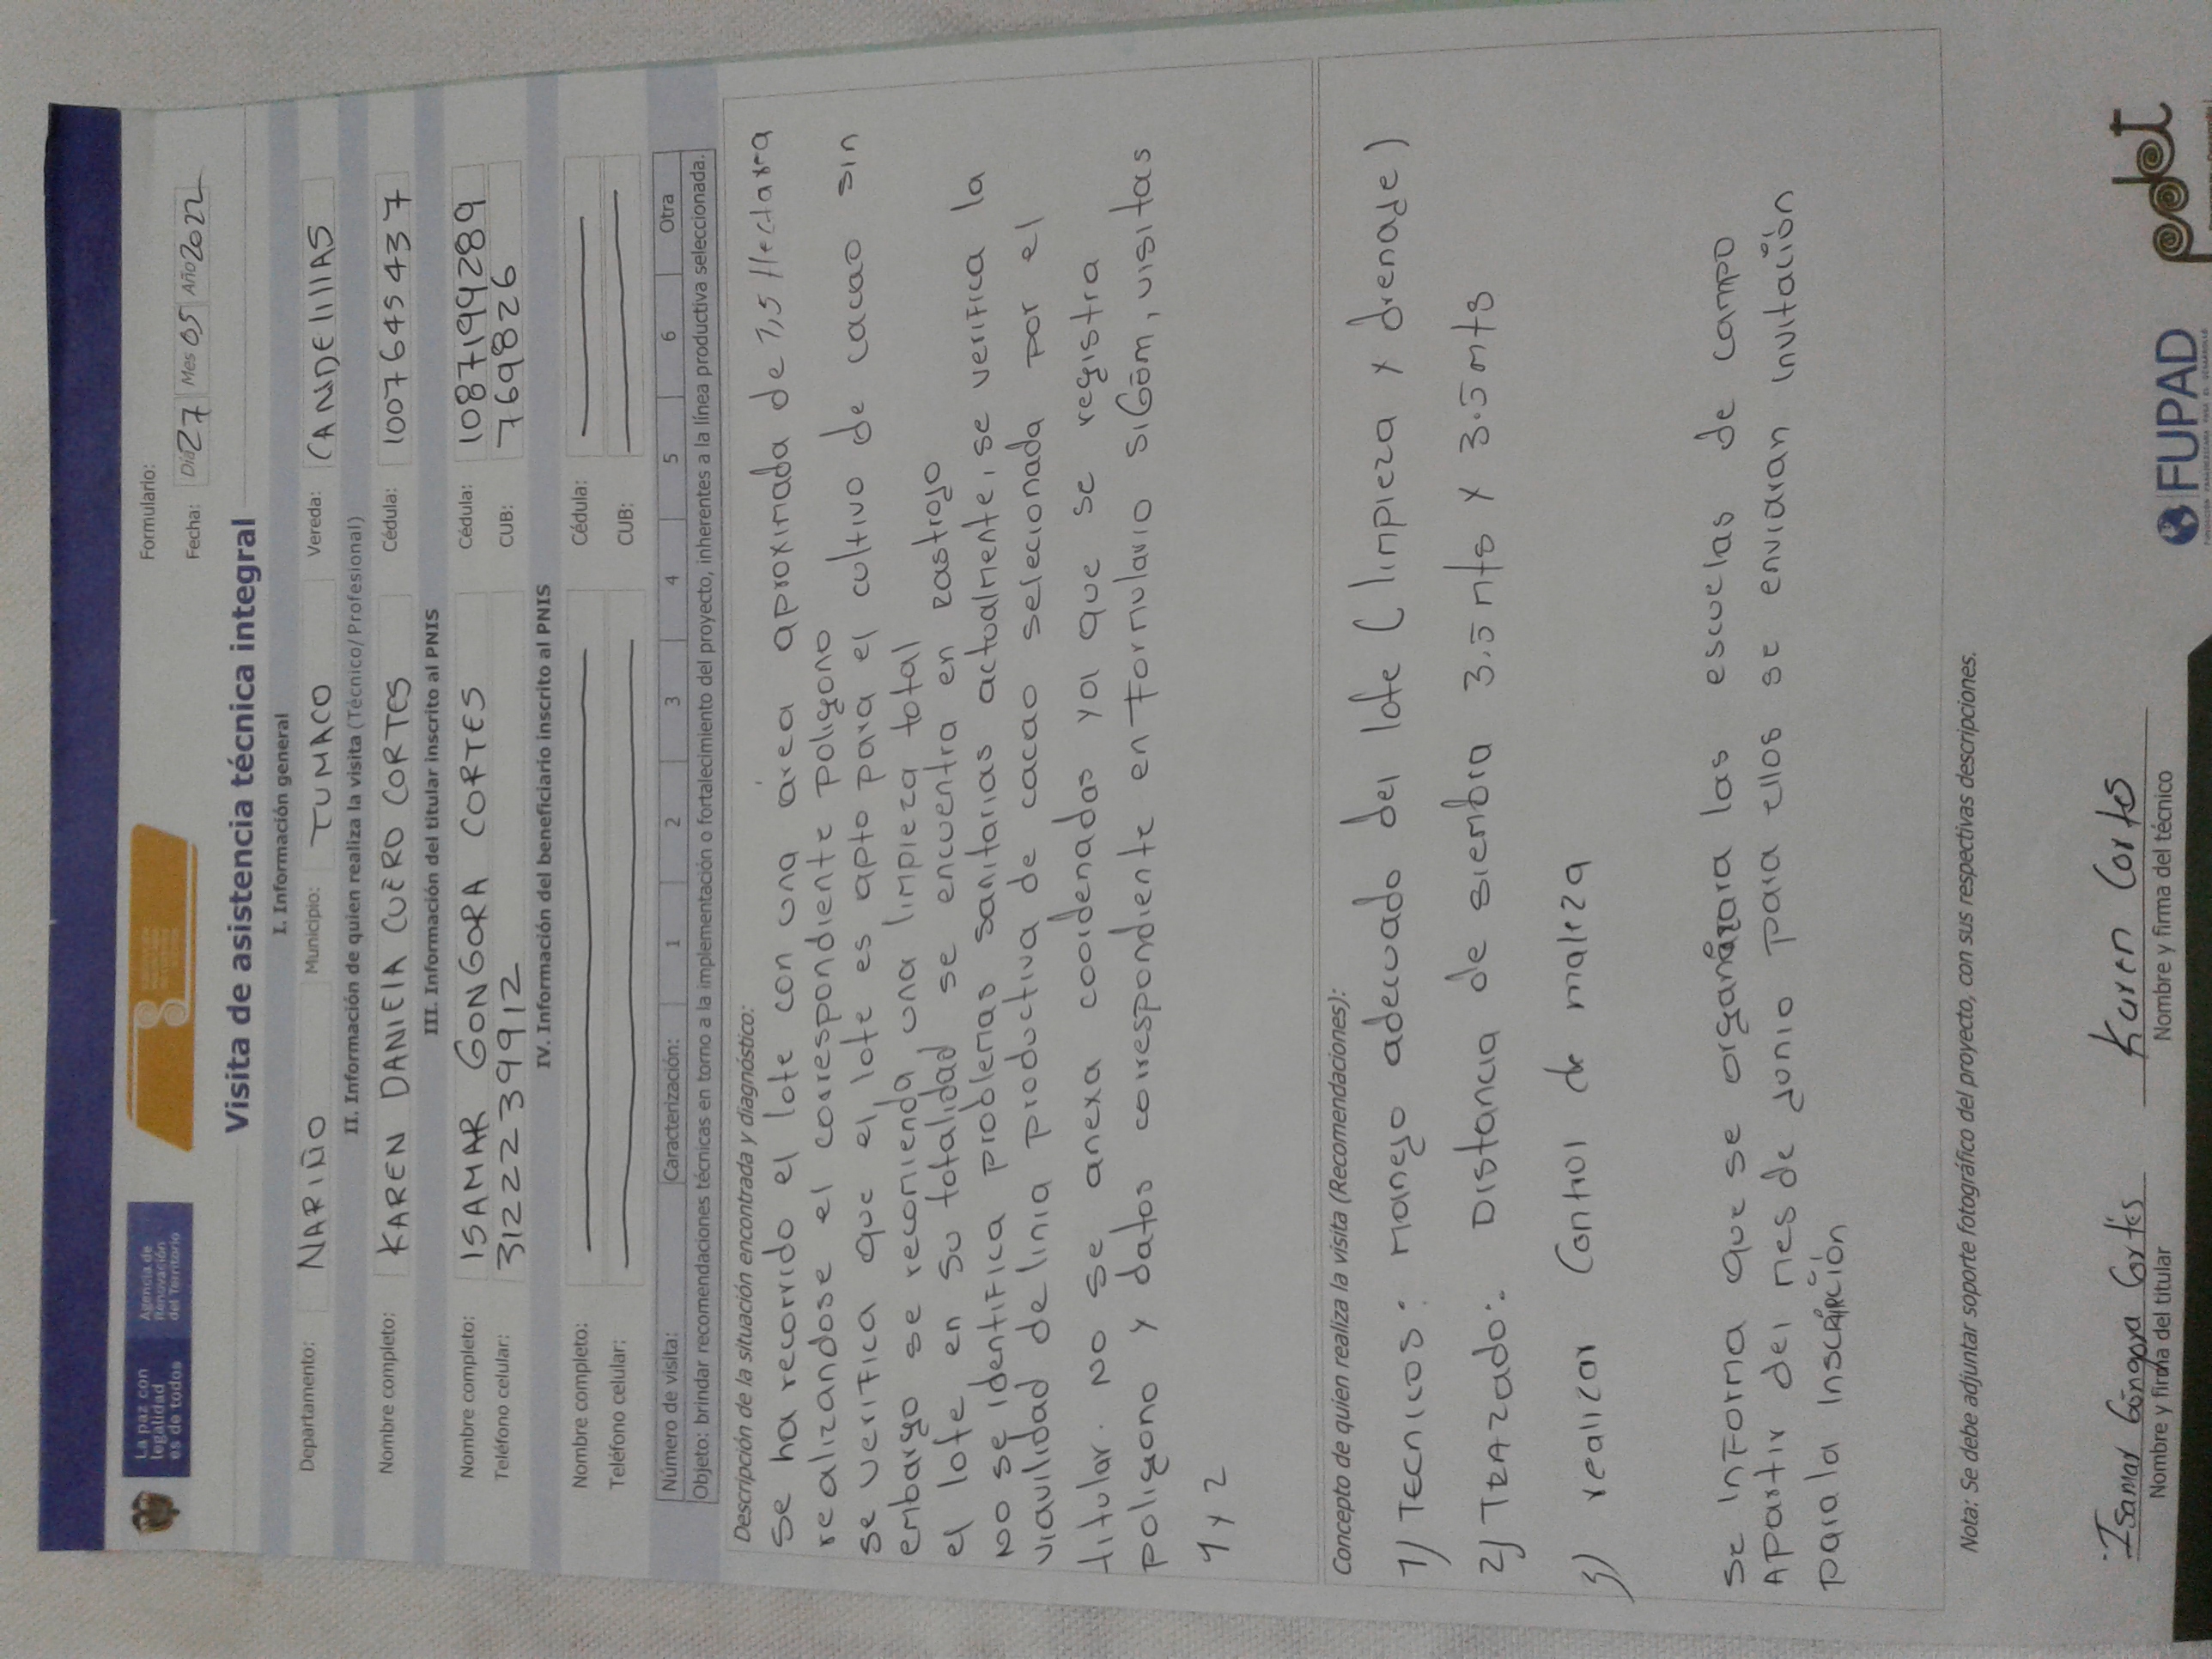 La paz con
legalidad
es de todos
Agencia de
Renovación
del Territorio
Formulario:
Fecha: Día 27 Mes 05 Año 2022
Visita de asistencia técnica integral
I. Información general
Departamento: NARIÑO Municipio: TUMACO Vereda: CANDElillAS
II. Información de quien realiza la visita (Técnico/Profesional)
Nombre completo: KAREN DANIElA CUERO CORTES Cédula: 1007645437
III. Información del titular inscrito al PNIS
Nombre completo: ISAMAR GONGORA CORTES Cédula: 1087199289
Teléfono celular: 3122239912 CUB: 769826
IV. Información del beneficiario inscrito al PNIS
Nombre completo: Cédula:
Teléfono celular: CUB:
Número de visita: Caracterización: 1 2 3 4 5 6 Otra
Objeto: brindar recomendaciones técnicas en torno a la implementación o fortalecimiento del proyecto, inherentes a la línea productiva seleccionada.
Descripción de la situación encontrada y diagnóstico:
se ha recorrido el lote con una área aproximada de 1,5 Hectarea
realizandose el correspondiente poligono
se verifica que el lote es apto para el cultivo de cacao sin
embargo se recomienda una limpieza total
el lote en su totalidad se encuentra en rastrojo
No se identifica problemas sanitarias actualmente, se verifica la
viavilidad de linia productiva de cacao selecionada por el
titular. No se anexa coordenadas ya que se registra
poligono y datos correspondiente en formulario sigom, visitas
1 y 2
Concepto de quien realiza la visita (Recomendaciones):
1) Tecnicos: manejo adecuado del lote (limpieza y drenade)
2) Trazado: Distancia de siembra 3.5 mts x 3.5 mts
3) realizar Control de maleza
se informa que se organizara las escuelas de campo
Apartir del mes de junio para ellos se enviaran invitación
para la inscripción
Nota: Se debe adjuntar soporte fotográfico del proyecto, con sus respectivas descripciones.
Isamar Góngora Cortés Karen Cortes
Nombre y firma del titular Nombre y firma del técnico
FUPAD
pdet